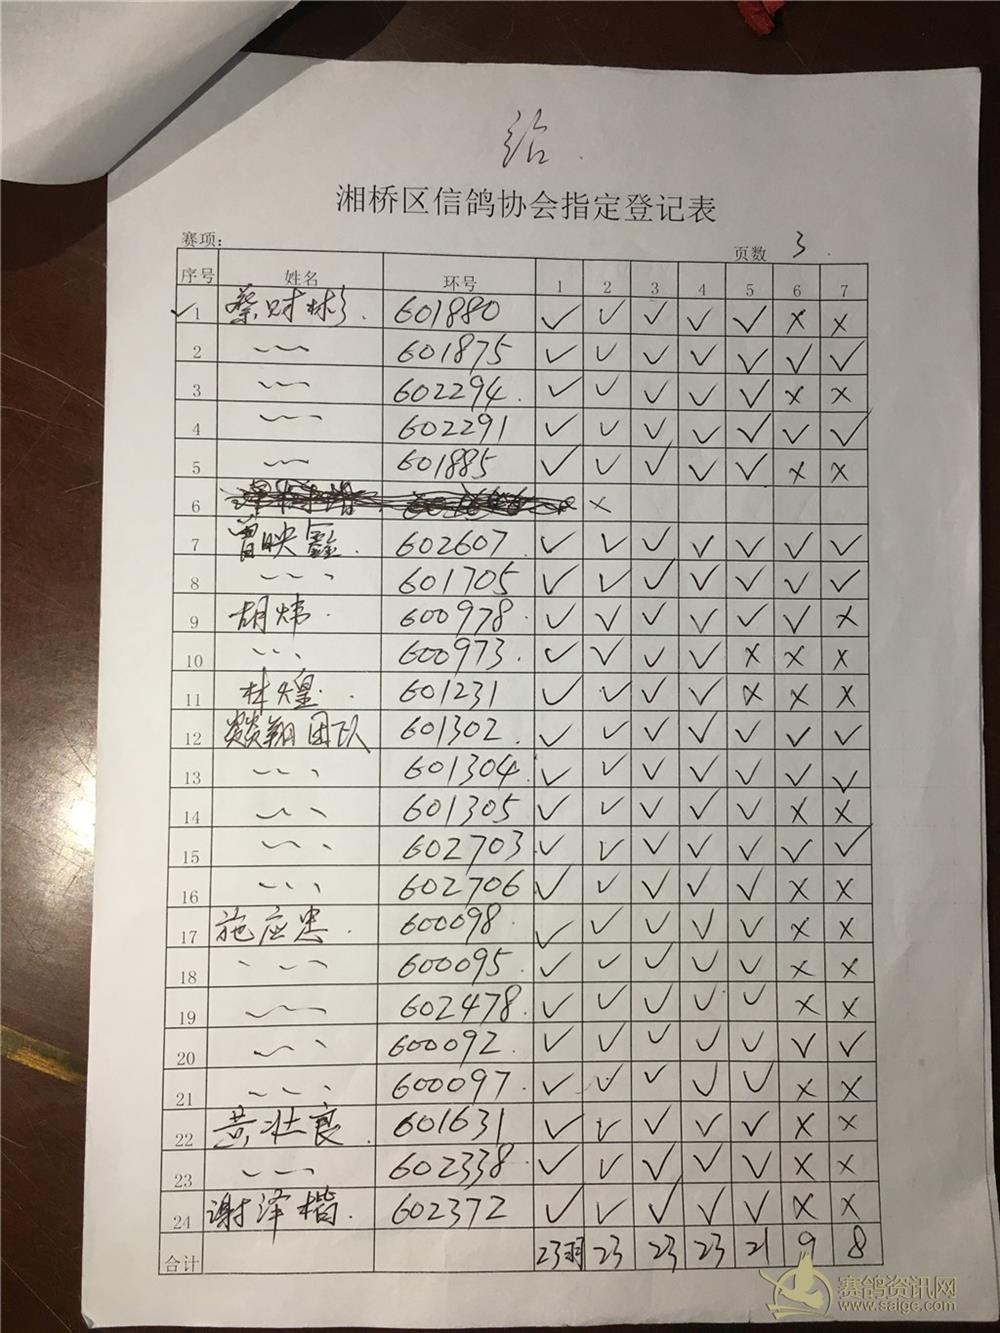 给.
湘桥区信鸽协会指定登记表
赛项: 页数 3.
序号 姓名 环号 1 2 3 4 5 6 7
✓1 蔡财彬. 601880 ✓ ✓ ✓ ✓ ✓ × ×
2 601875 ✓ ✓ ✓ ✓ ✓ ✓ ✓
3 602294. ✓ ✓ ✓ ✓ ✓ × ×
4 602291 ✓ ✓ ✓ ✓ ✓ ✓ ✓
5 601885 ✓ ✓ ✓ ✓ ✓ × ×
6 ×
7 曾映鑫. 602607 ✓ ✓ ✓ ✓ ✓ ✓ ✓
8 601705 ✓ ✓ ✓ ✓ ✓ ✓ ✓
9 胡炜. 600978. ✓ ✓ ✓ ✓ ✓ ✓ ×
10 600973. ✓ ✓ ✓ ✓ × × ×
11 林煌. 601231 ✓ ✓ ✓ ✓ × × ×
12 翔团队 601302. ✓ ✓ ✓ ✓ ✓ ✓ ✓
13 601304 ✓ ✓ ✓ ✓ ✓ ✓ ✓
14 601305 ✓ ✓ ✓ ✓ ✓ × ×
15 602703 ✓ ✓ ✓ ✓ ✓ ✓ ✓
16 602706 ✓ ✓ ✓ ✓ ✓ × ×
17 施应忠. 600098. ✓ ✓ ✓ ✓ ✓ × ×
18 600095. ✓ ✓ ✓ ✓ ✓ × ×
19 602478 ✓ ✓ ✓ ✓ ✓ × ×
20 600092. ✓ ✓ ✓ ✓ ✓ ✓ ✓
21 600097. ✓ ✓ ✓ ✓ ✓ × ×
22 黄壮良. 601631 ✓ ✓ ✓ ✓ ✓ × ×
23 602338. ✓ ✓ ✓ ✓ ✓ × ×
24 谢泽楷. 602372 ✓ ✓ ✓ ✓ ✓ × ×
合计 23羽 23 23 23 21 9 8
赛鸽资讯网
www.saige.com